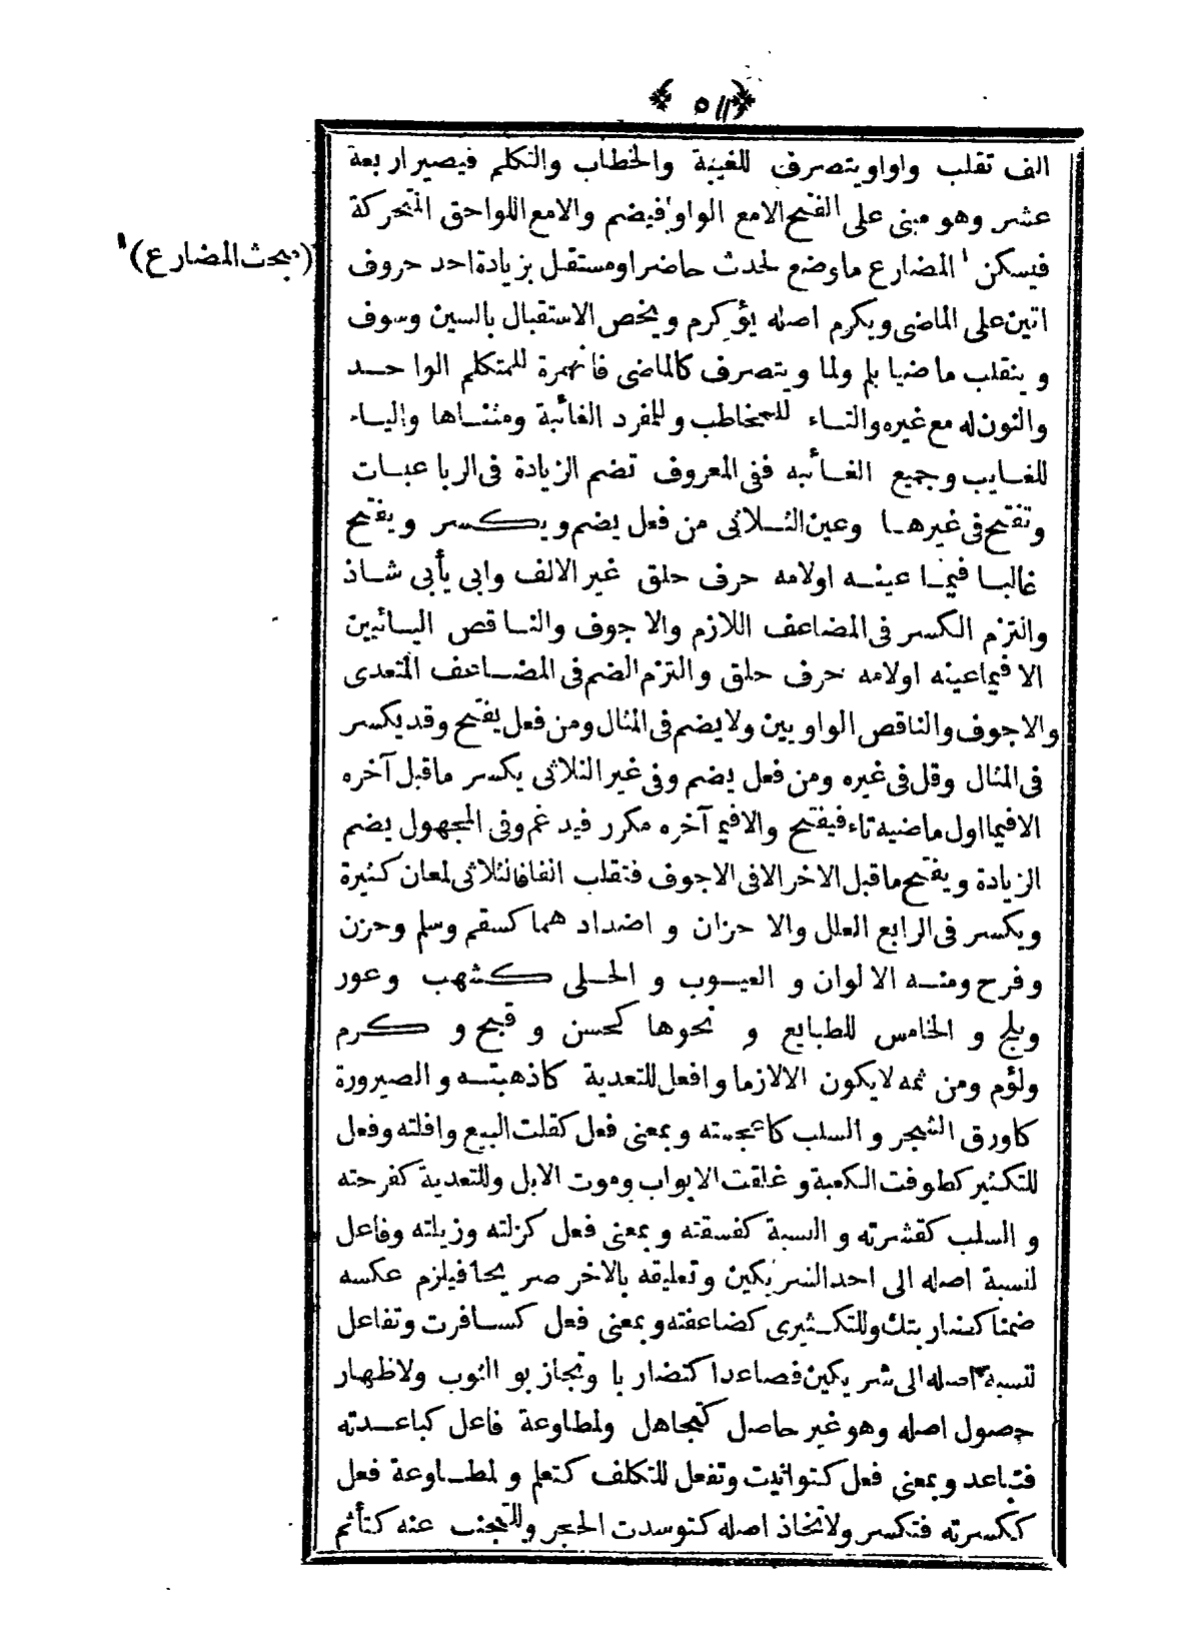 ﴿ ٥١١ ﴾
الف تقلب واوا ويتصرف للغيبة والخطاب والتكلم فيصير اربعة
عشر وهو مبنى على الفتح الامع الواو فيضم والامع اللواحق المتحركة
فيسكن المضارع ماوضع لحدث حاضرا ومستقبل بزيادة احد حروف
(مبحث المضارع)
اتين على الماضى ويكرم اصله يؤكرم ويخص الاستقبال بالسين وسوف
وينقلب ماضيا بلم ولما ويتصرف كالماضى فالهمزة للمتكلم الواحد
والنون له مع غيره والتاء للمخاطب وللمفرد الغائبة ومثناها والياء
للغايب وجميع الغائبه ففى المعروف تضم الزيادة فى الرباعيات
وتفتح فى غيرها وعين الثلاثى من فعل يضم ويكسر ويفتح
غالبا فيما عينه اولامه حرف حلق غير الالف وابى يأبى شاذ
والتزم الكسر فى المضاعف اللازم والاجوف والناقص اليائيين
الا فيماعينه اولامه حرف حلق والتزم الضم فى المضاعف المتعدى
والاجوف والناقص الواويين ولايضم فى المثال ومن فعل يفتح وقديكسر
فى المثال وقل فى غيره ومن فعل يضم وفى غير الثلاثى يكسر ماقبل آخره
الا فيما اول ماضيه تاء فيفتح والا فيما آخره مكرر فيدغم وفى المجهول يضم
الزيادة ويفتح ماقبل الاخر الا فى الاجوف فتقلب الفا فالثلاثى لمعان كثيرة
ويكسر فى الرابع العلل والاحزان واضداد هما كسقم وسلم وحزن
وفرح ومنه الالوان و العيوب و الحلى كشهب وعور
وبلج و الخامس للطبايع و نحوها كحسن و قبح و كرم
ولؤم ومن ثمه لايكون الالازما وافعل للتعدية كاذهبته و الصيرورة
كاورق الشجر و السلب كاعجمته و بمعنى فعل كقلت البيع واقلته وفعل
للتكثير كطوفت الكعبة و غلقت الابواب وموت الابل وللتعدية كفرحته
و السلب كقشرته و النسبة كفسقته و بمعنى فعل كزلته وزيلته وفاعل
لنسبة اصله الى احد الشريكين وتعليقه بالاخر صريحا فيلزم عكسه
ضمنا كضاربتك وللتكثيرى كضاعفته وبمعنى فعل كسافرت وتفاعل
لنسبة اصله الى شريكين فصاعدا كتضاربا وتجاز بو الثوب ولاظهار
حصول اصله وهو غير حاصل كتجاهل ولمطاوعة فاعل كباعدته
فتباعد وبمعنى فعل كتوانيت وتفعل للتكلف كتعلم ولمطاوعة فعل
ككسرته فتكسر ولاتخاذ اصله كتوسدت الحجر وللتجنب عنه كتأثم